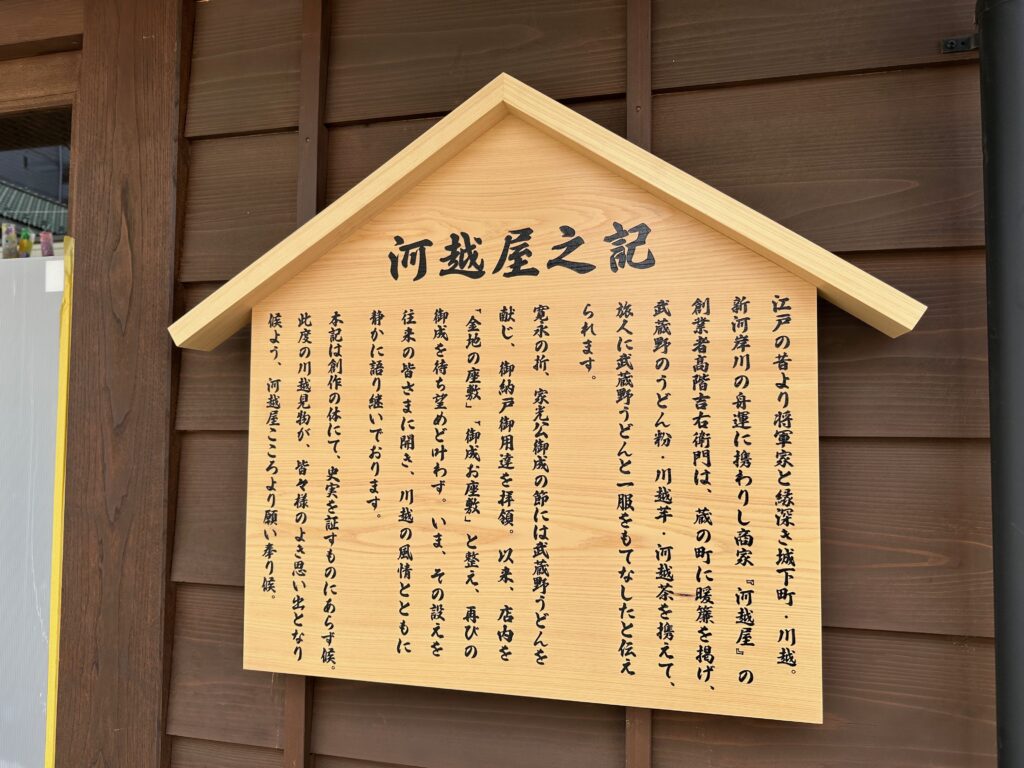 河越屋之記
江戸の昔より将軍家と縁深き城下町・川越。
新河岸川の舟運に携わりし商家『河越屋』の
創業者高階吉右衛門は、蔵の町に暖簾を掲げ、
武蔵野のうどん粉・川越芋・河越茶を携えて、
旅人に武蔵野うどんと一服をもてなしたと伝え
られます。
寛永の折、家光公御成の節には武蔵野うどんを
献じ、御納戸御用達を拝領。以来、店内を
「金地の座敷」「御成お座敷」と整え、再びの
御成を待ち望めど叶わず。いま、その設えを
往来の皆さまに開き、川越の風情とともに
静かに語り継いでおります。
本記は創作の体にて、史実を証すものにあらず候。
此度の川越見物が、皆々様のよき思い出となり
候よう、河越屋こころより願い奉り候。